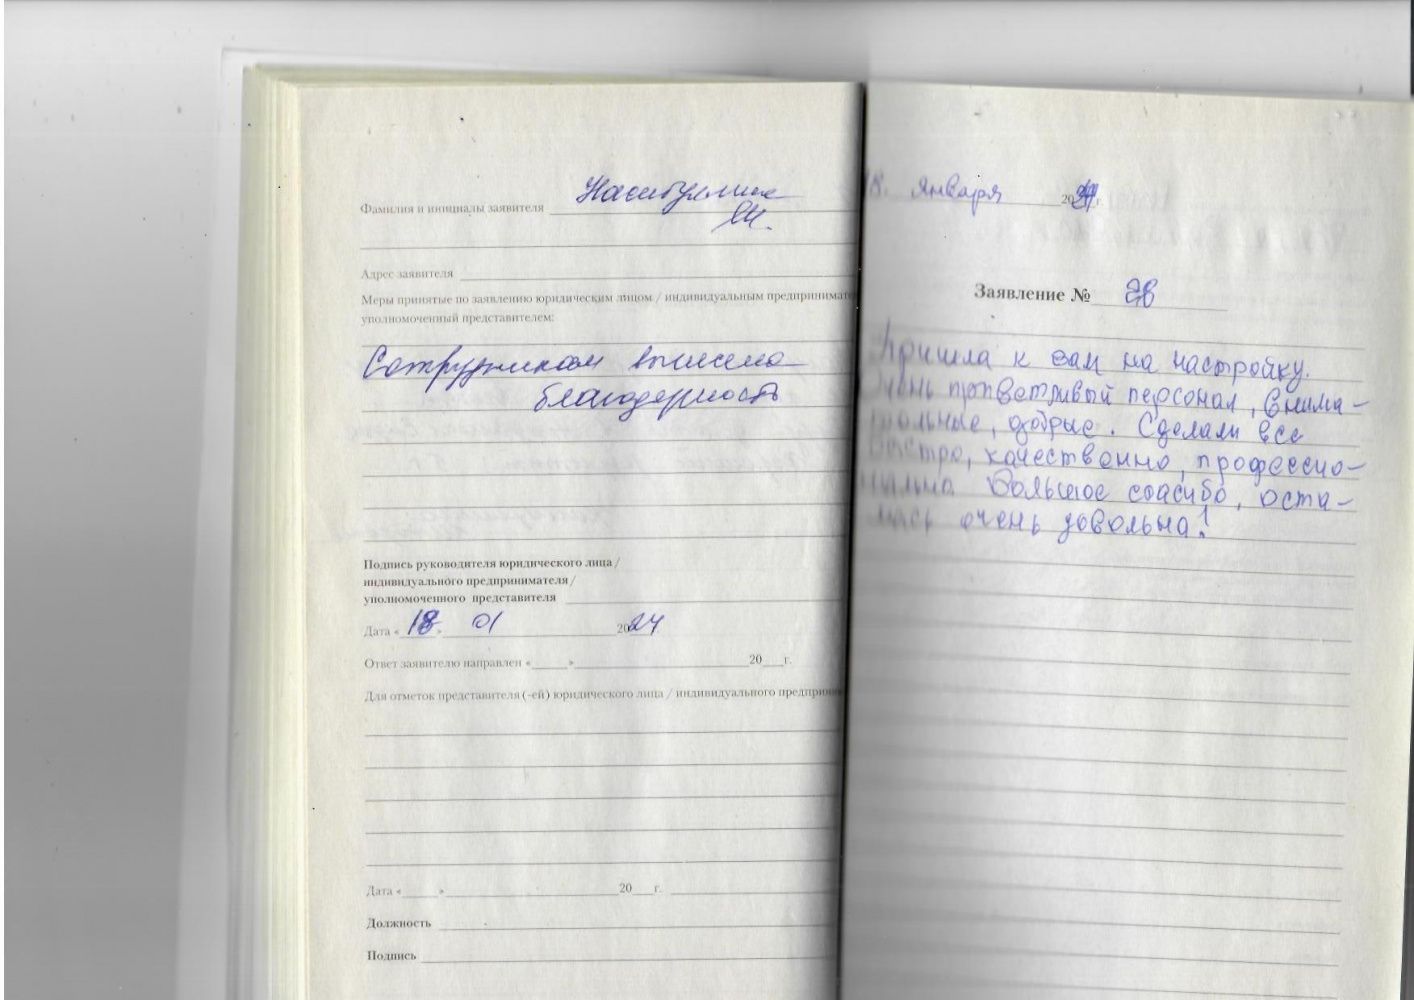 Фамилия и инициалы заявителя Насибуллина
Адрес заявителя
Меры принятые по заявлению юридическим лицом / индивидуальным предпринимате
уполномоченный представителем:
Сотрудникам вынесена
благодарность
Подпись руководителя юридического лица /
индивидуального предпринимателя /
уполномоченного представителя
Дата « 18 » 01 2024
Ответ заявителю направлен «____» 20___г.
Для отметок представителя (-ей) юридического лица / индивидуального предприни
Дата «____» 20___г.
Должность
Подпись
18. января 2024 г.
Заявление № 28
Пришла к вам на настройку.
Очень приветливый персонал, внима-
тельные, добрые. Сделали все
быстро, качественно, профессио-
нально Большое спасибо, оста-
лась очень довольна!